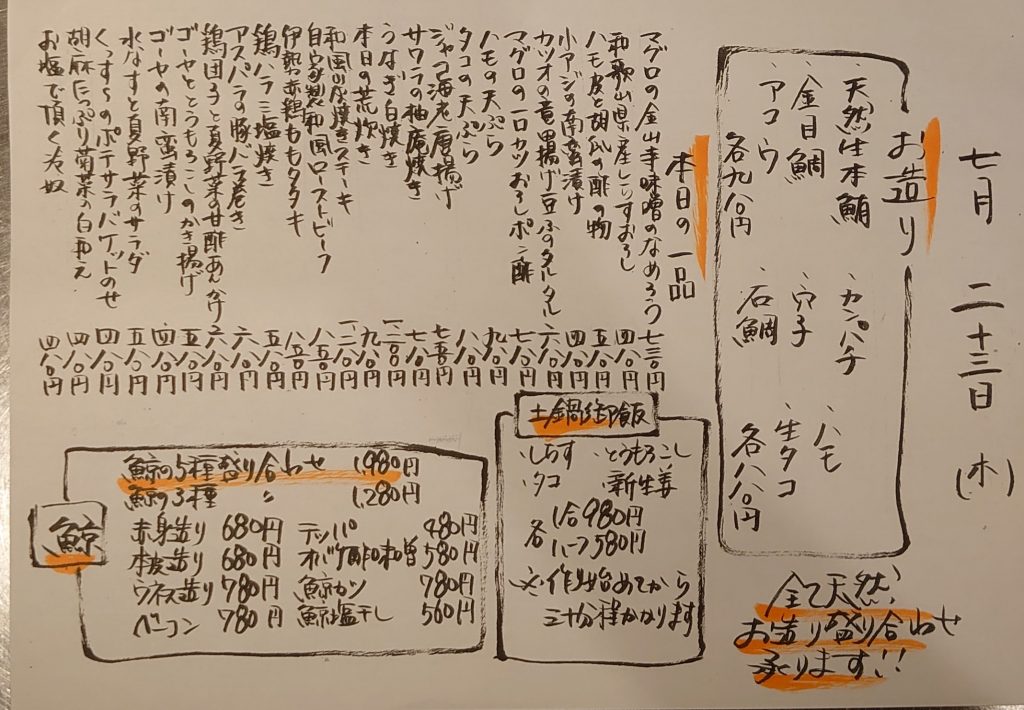 七月 二十三日 (木)
お造り
・天然生本鮪 ・カンパチ ・ハモ
・金目鯛 ・穴子 ・生タコ
・アコウ ・石鯛
各九八〇円 各八八〇円
全て天然!
お造り盛り合わせ
承ります!!
本日の一品
マグロの金山寺味噌のなめろう 七三〇円
和歌山県産しらすおろし 四八〇円
ハモ皮と胡瓜の酢の物 五八〇円
小アジの南蛮漬け 四八〇円
カツオの竜田揚げ豆ふのタルタル 六八〇円
マグロの一口カツおろしポン酢 七八〇円
ハモの天ぷら 九八〇円
タコの天ぷら 八八〇円
ジャコ海老唐揚げ 七五〇円
サワラの柚庵焼き 七八〇円
うなぎ白焼き
本日の荒炊き 九八〇円
和風山芋焼きステーキ
自家製和風ローストビーフ 八五〇円
伊勢赤鶏ももタタキ 八五〇円
鶏ハラミ塩焼き 五八〇円
アスパラの豚バラ巻き 六八〇円
鶏団子と夏野菜の甘酢あんかけ 六八〇円
ゴーヤととうもろこしのかき揚げ 五八〇円
ゴーヤの南蛮漬け 四八〇円
水なすと夏野菜のサラダ 五八〇円
くんすらのポテサラバケットのせ 四八〇円
胡麻たっぷり菊菜の白和え 四八〇円
お塩で頂く冷奴 四八〇円
土鍋御飯
・しらす ・とうもろこし
・タコ ・新生姜
各 1合980円
ハーフ580円
※作り始めてから
三十分程かかります
鯨
鯨の5種盛り合わせ 1,980円
鯨の3種 〃 1,280円
赤身造り 680円 テッパ 480円
本皮造り 680円 オバケ酢味噌 580円
ウネス造り 780円 鯨カツ 780円
ベーコン 780円 鯨塩干し 560円